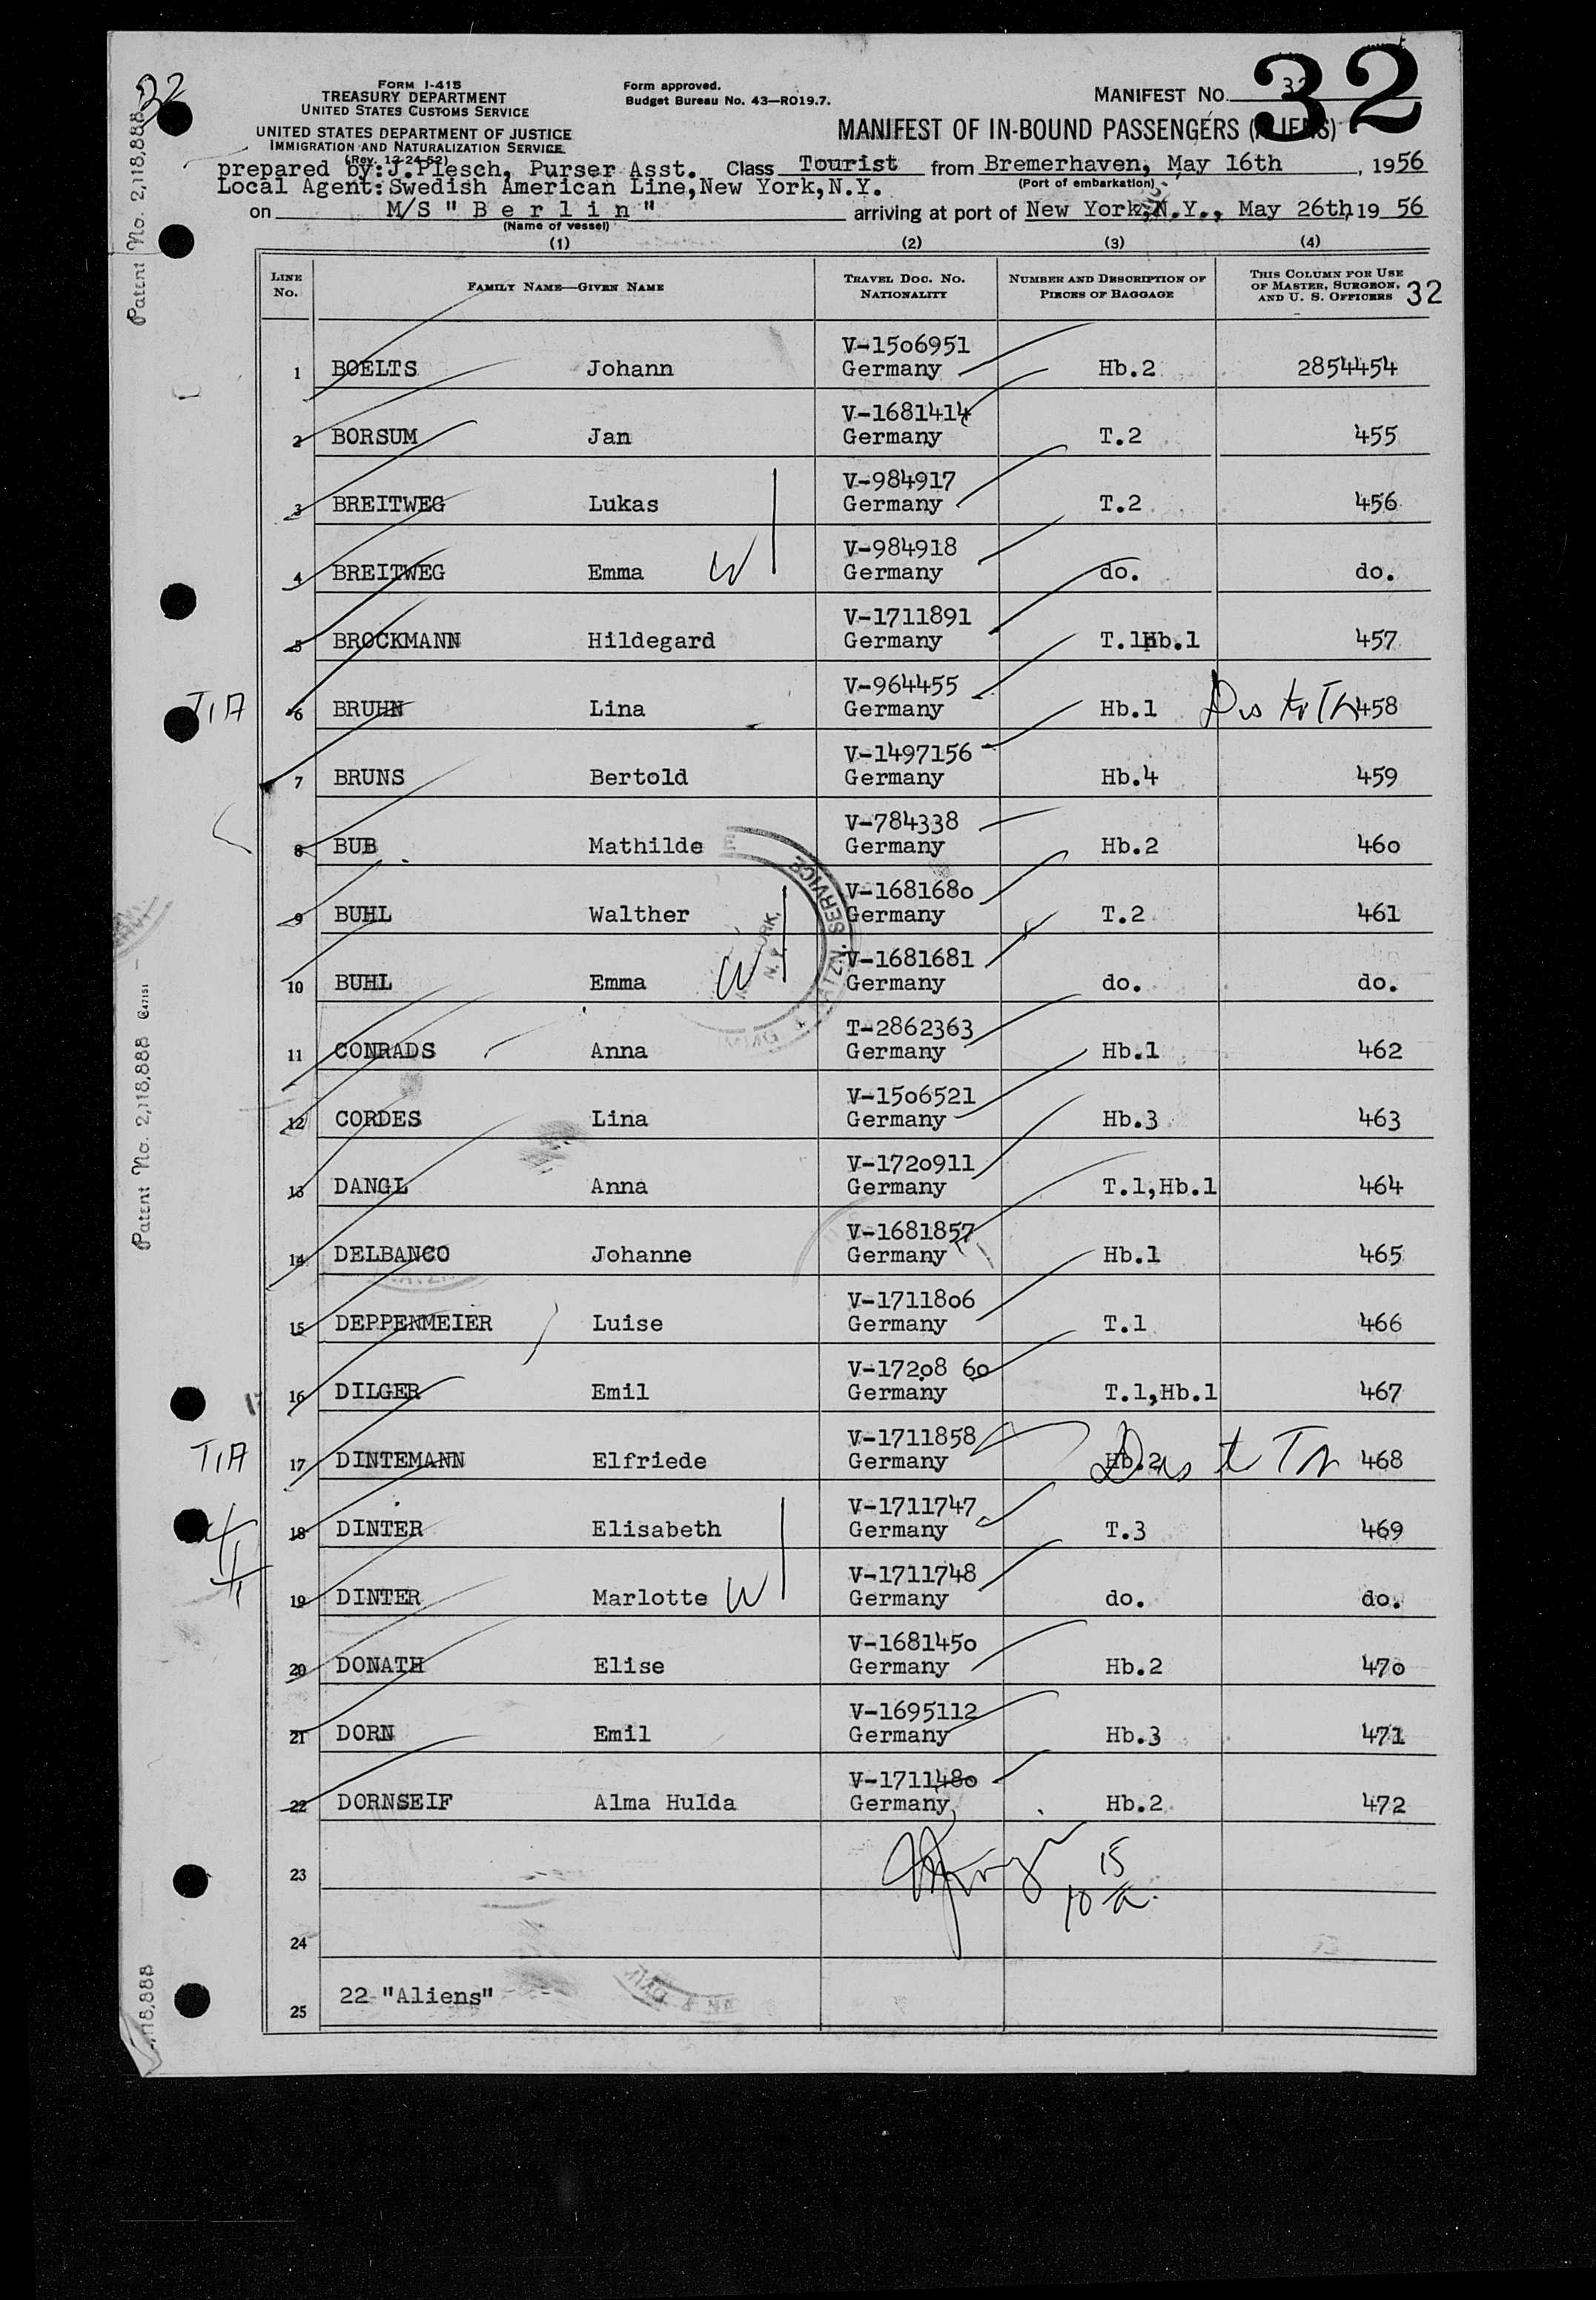 32
FORM I-415
TREASURY DEPARTMENT
UNITED STATES CUSTOMS SERVICE
UNITED STATES DEPARTMENT OF JUSTICE
IMMIGRATION AND NATURALIZATION SERVICE
(Rev. 12-24-52)
Form approved.
Budget Bureau No. 43—RO19.7.
MANIFEST NO. 32
32
MANIFEST OF IN-BOUND PASSENGERS (ALIENS)
prepared by:J.Plesch, Purser Asst. Class Tourist from Bremerhaven, May 16th, 1956
(Port of embarkation)
Local Agent:Swedish American Line,New York,N.Y.
on M/S " B e r l i n " arriving at port of New York,N.Y., May 26th, 19 56
(Name of vessel)
(1) (2) (3) (4)
LINE No. FAMILY NAME—GIVEN NAME TRAVEL DOC. NO. NATIONALITY NUMBER AND DESCRIPTION OF PIECES OF BAGGAGE THIS COLUMN FOR USE OF MASTER, SURGEON, AND U. S. OFFICERS 32
V-1506951
1 BOELTS Johann Germany Hb.2 2854454
V-1681414
2 BORSUM Jan Germany T.2 455
V-984917
3 BREITWEG Lukas Germany T.2 456
V-984918
4 BREITWEG Emma W Germany do. do.
V-1711891
5 BROCKMANN Hildegard Germany T.1Hb.1 457
V-964455
T/A 6 BRUHN Lina Germany Hb.1 458
V-1497156
7 BRUNS Bertold Germany Hb.4 459
V-784338
8 BUB Mathilde Germany Hb.2 460
V-1681680
9 BUHL Walther Germany T.2 461
V-1681681
10 BUHL Emma W Germany do. do.
T-2862363
11 CONRADS Anna Germany Hb.1 462
V-1506521
12 CORDES Lina Germany Hb.3 463
V-1720911
13 DANGL Anna Germany T.1,Hb.1 464
V-1681857
14 DELBANCO Johanne Germany Hb.1 465
V-1711806
15 DEPPENMEIER Luise Germany T.1 466
V-17208 60
16 DILGER Emil Germany T.1,Hb.1 467
V-1711858
T/A 17 DINTEMANN Elfriede Germany Hb.2 468
V-1711747
18 DINTER Elisabeth Germany T.3 469
V-1711748
19 DINTER Marlotte W Germany do. do.
V-1681450
20 DONATH Elise Germany Hb.2 470
V-1695112
21 DORN Emil Germany Hb.3 471
V-1711480
22 DORNSEIF Alma Hulda Germany Hb.2 472
23
15
10
24
25 22 "Aliens"
Patent No. 2,118,888
Patent No. 2,118,888